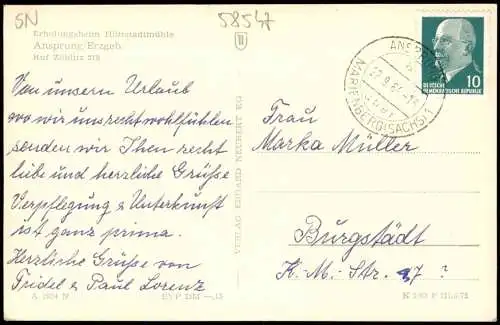 SN
58547
Erholungsheim Hüttstadtmühle
Ansprung/Erzgeb.
Ruf Zöblitz 378
Von unserm Urlaub
wo wir uns recht wohlfühlen
senden wir Ihnen recht
liebe und herzliche Grüße
Verpflegung & Unterkunft
ist ganz prima.
Herzliche Grüße von
Fridel & Paul Lorenz
VERLAG ERHARD NEUBERT KG
ANSPRUNG
über
MARIENBERG (SACHS)
10
DEUTSCHE
DEMOKRATISCHE REPUBLIK
Frau
Marka Müller
Burgstädt
K.-M.-Str. 17 ?
A 1934 N
EVP DM -,15